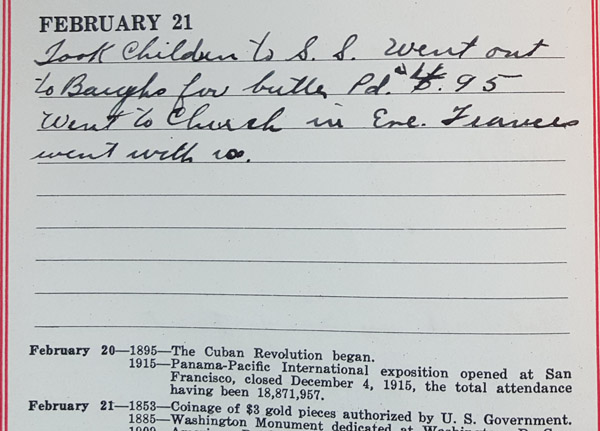 FEBRUARY 21
Took Children to S. S. Went out
to Baughs for butter Pd. .95
Went to Church in Eve. Frances
went with us.
February 20—1895—The Cuban Revolution began.
1915—Panama-Pacific International exposition opened at San
Francisco, closed December 4, 1915, the total attendance
having been 18,871,957.
February 21—1853—Coinage of $3 gold pieces authorized by U. S. Government.
1885—Washington Monument dedicated at Washington, D. C.